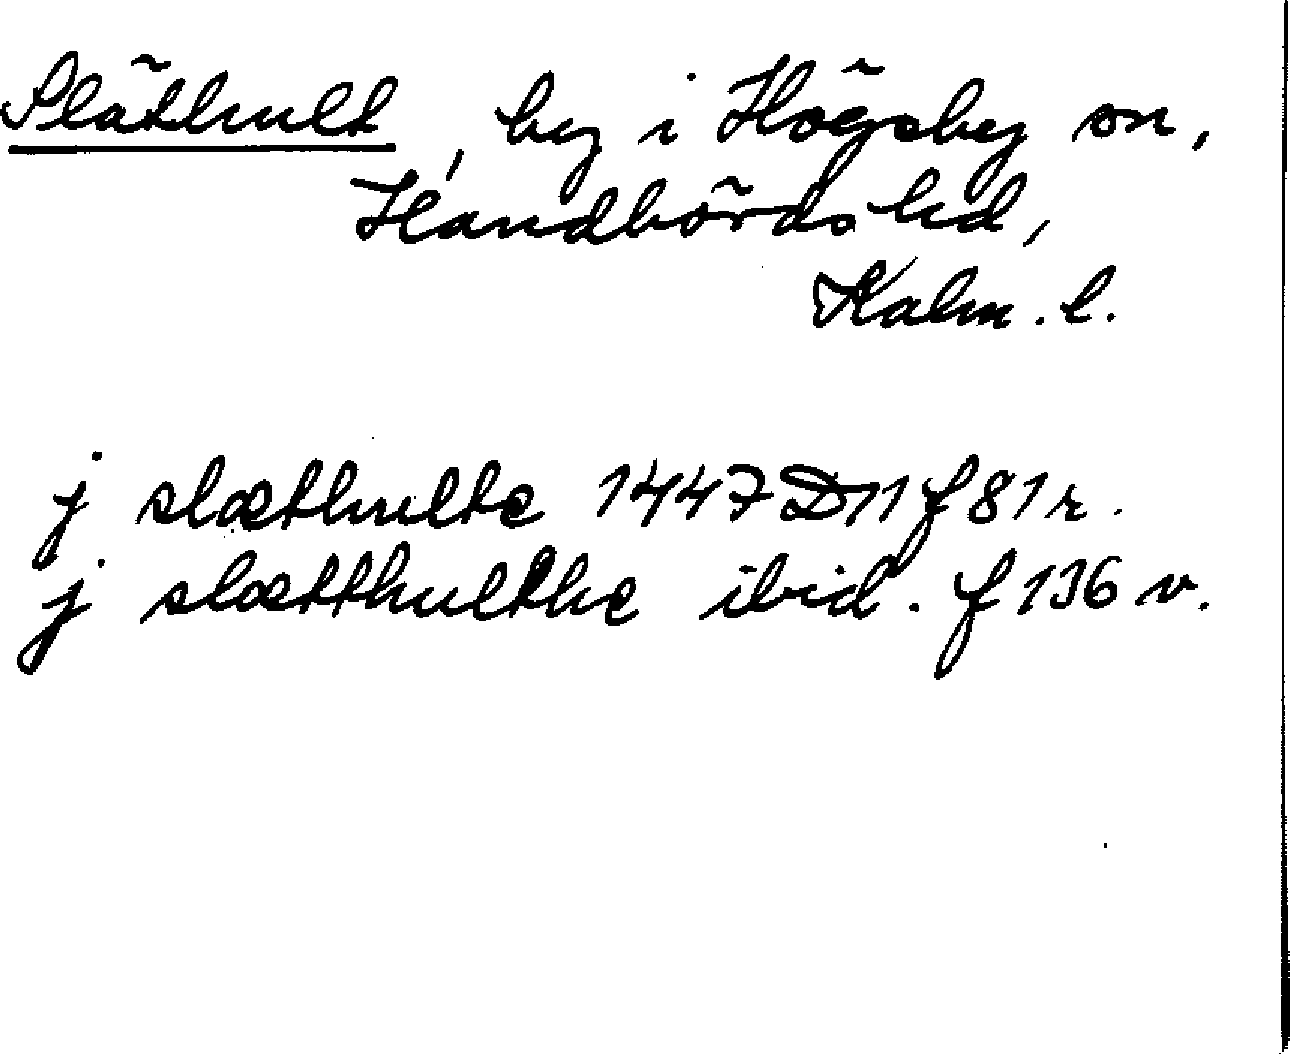 Släthult, by i Högsby sn,
Handbörds hd,
Kalm. l.
j slæthulte 1447 D11 f 81 r.
j slætthulthe ibid. f 136 v.